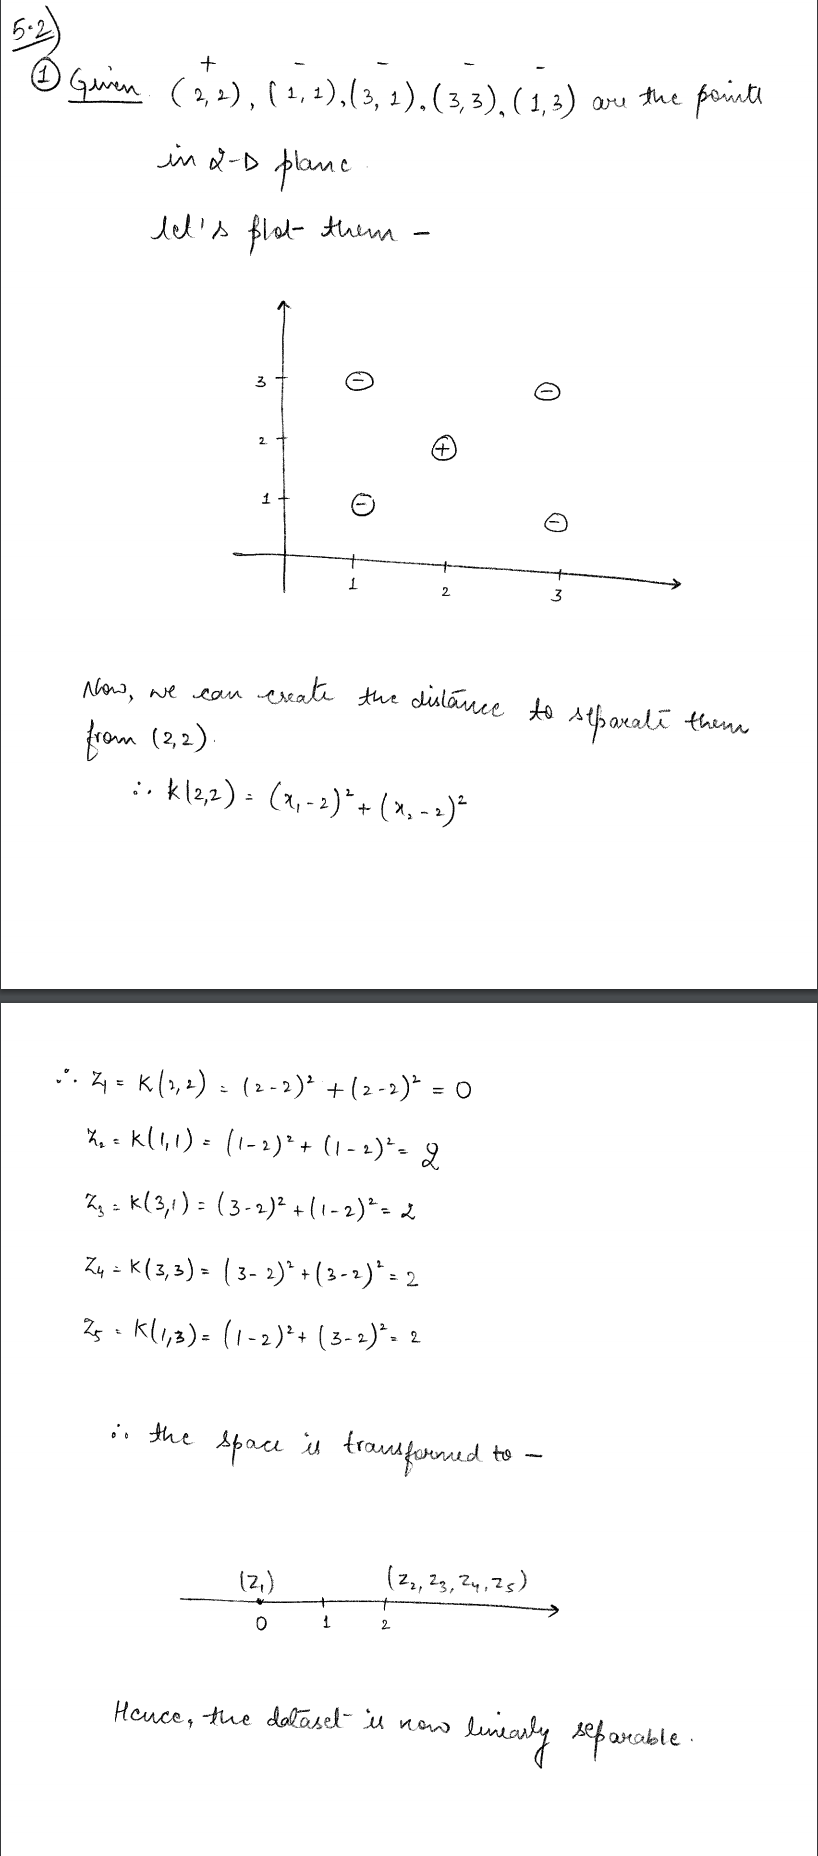 5.2)
① Given (2,2), (1,1), (3,1), (3,3), (1,3) are the points
+ - - - -
in 2-D plane.
let's plot them -
3 ⊖ ⊖
2 ⊕
1 ⊖ ⊖
1 2 3
Now, we can create the distance to separate them
from (2,2).
∴ K(2,2) = (x₁-2)² + (x₂-2)²
∴ Z₁ = K(2,2) = (2-2)² + (2-2)² = 0
Z₂ = K(1,1) = (1-2)² + (1-2)² = 2
Z₃ = K(3,1) = (3-2)² + (1-2)² = 2
Z₄ = K(3,3) = (3-2)² + (3-2)² = 2
Z₅ = K(1,3) = (1-2)² + (3-2)² = 2
∴ the space is transformed to -
(Z₁) (Z₂, Z₃, Z₄, Z₅)
0 1 2
Hence, the dataset is now linearly separable.